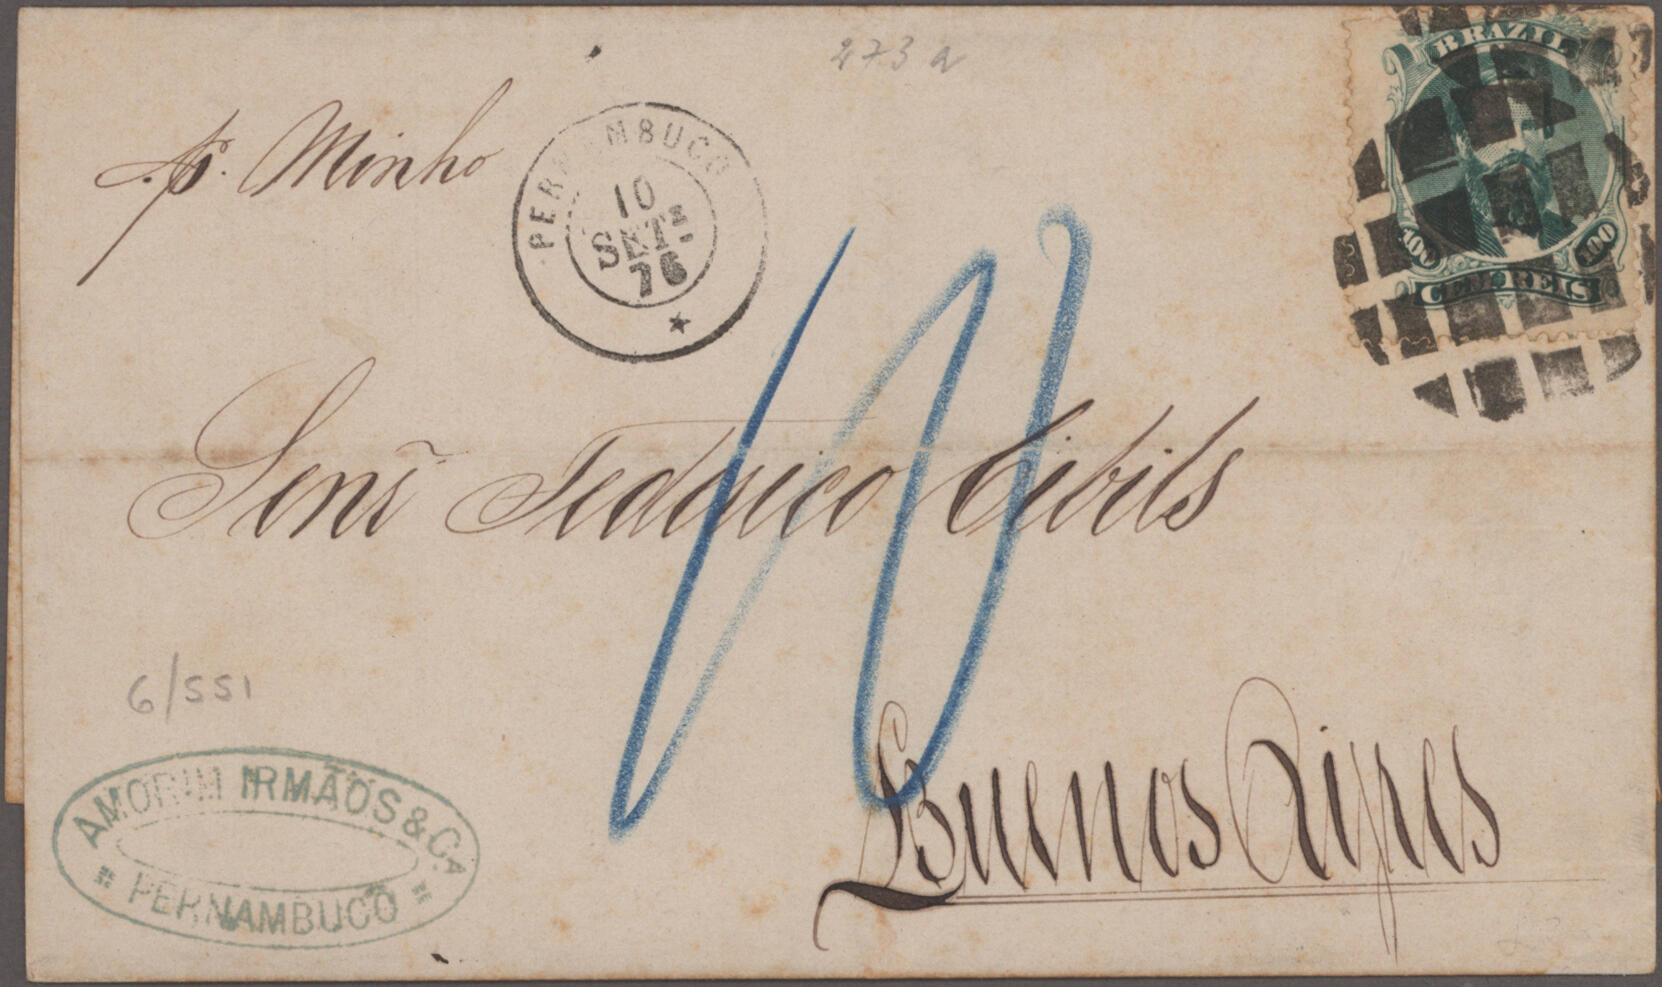 273 a
BRAZIL
100 100
CEM REIS
pr. Minho
PERNAMBUCO
10
SETE
76
Senr Federico Cibils
6/551
AMORIM IRMÃOS & CA
PERNAMBUCO
Buenos Aires